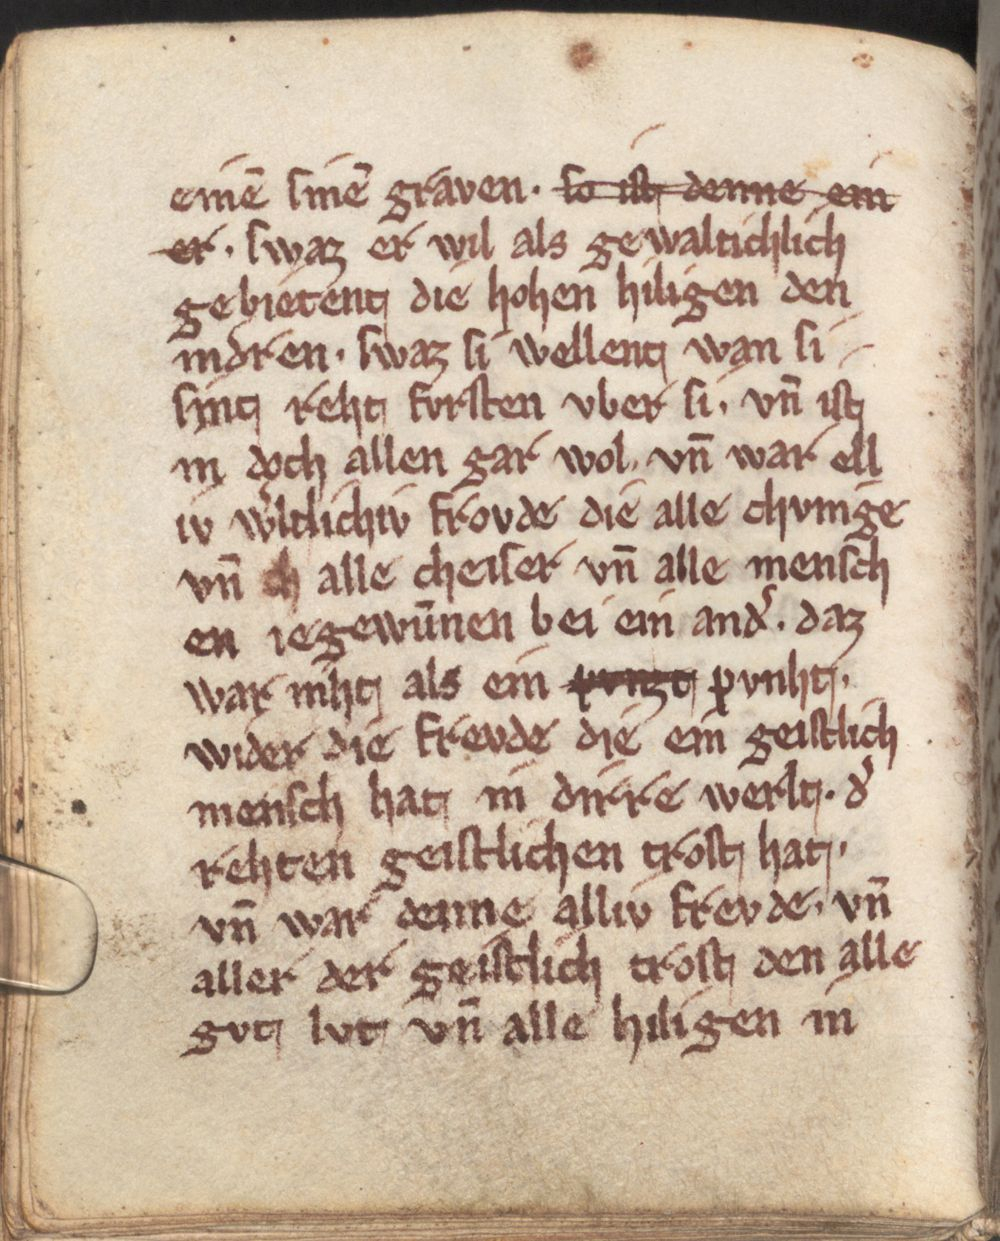 einē sinē graven · so ist denne ein
er · swaz er wil als gewaltichlich
gebietent die hohen hiligen den
indren · swaz si wellent wan si
sint reht fvrsten vber si · vn̄ ist
in doch allen gar wol · vn̄ war ell
iv wltlichiv frovde die alle chvnige
vn̄ ch alle cheiser vn̄ alle mensch
en iegewūnen bei ein and᾽ · daz
war niht als ein pvngt pvnht ·
wider die frevde die ein geistlich
mensch hat in dirre werlt · d᾽
rehten geistlichen trost hat ·
vn̄ war denne alliv frevde · vn̄
aller der geistlich trost den alle
gvt lvt vn̄ alle hiligen in